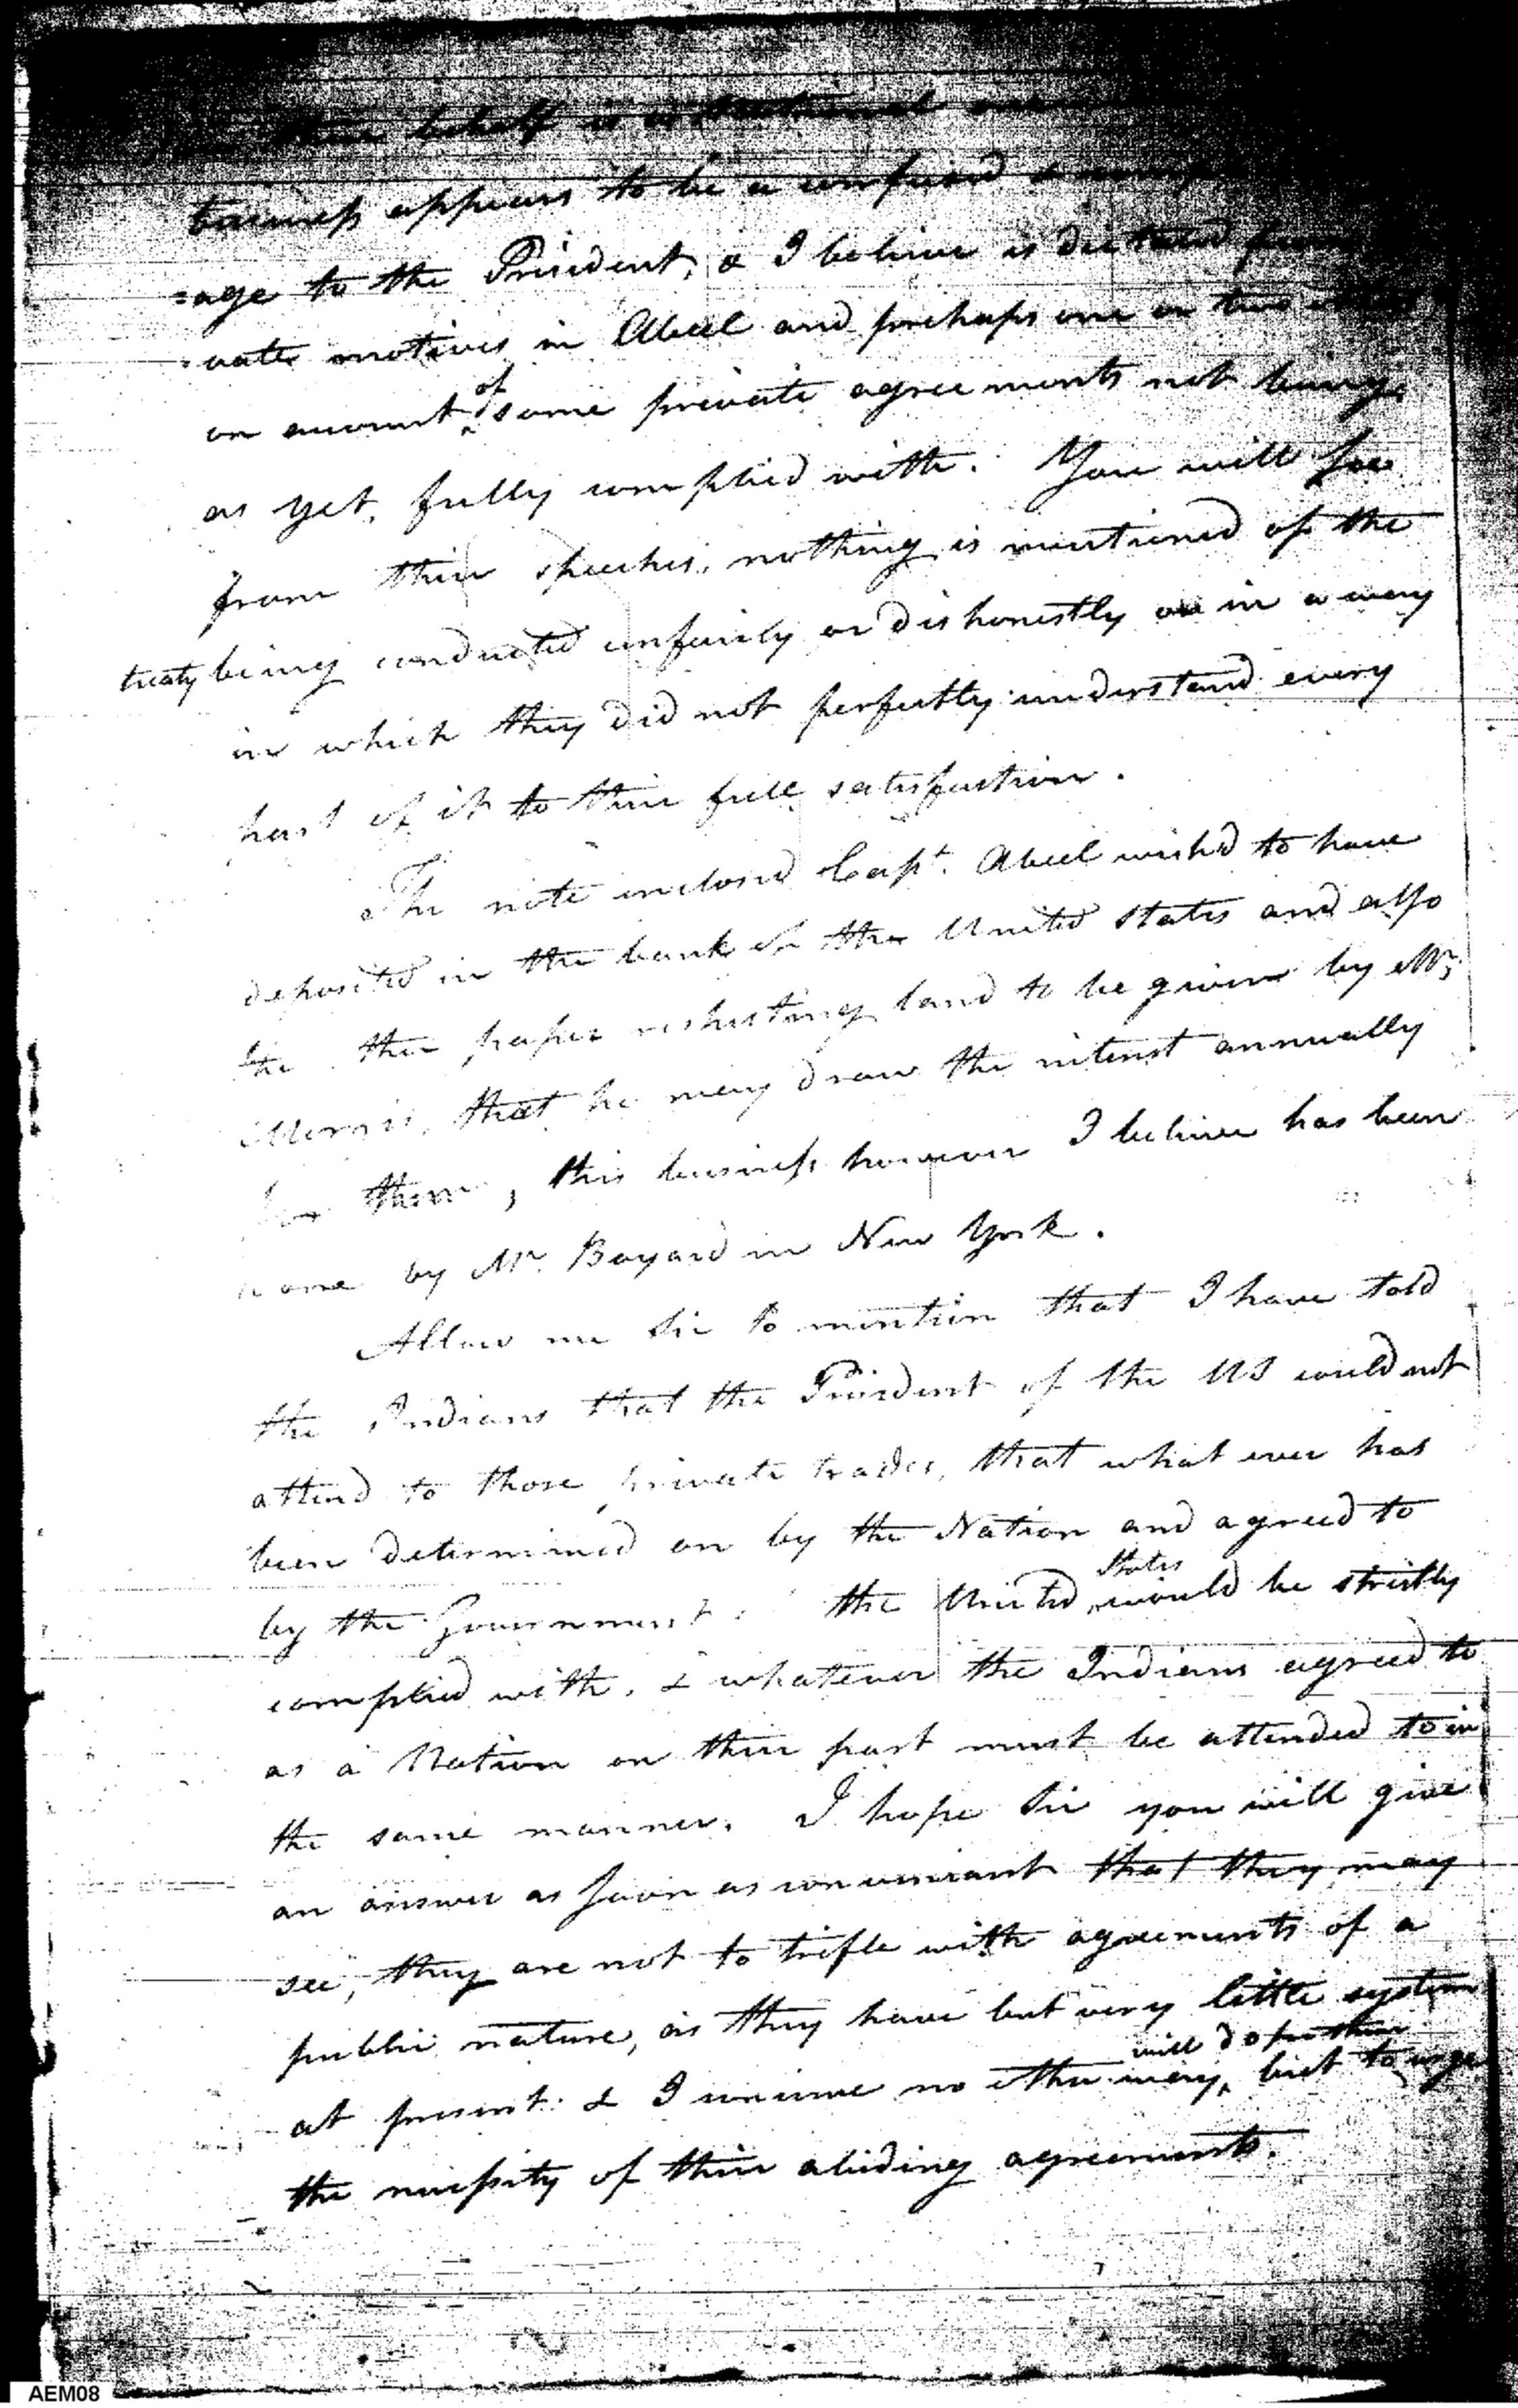 their behalf is
business appears to be a confused
=age to the President, & I believe is dictated from
=vate motives in Abeel and perhaps one or two
on account of some private agreements not being
as yet, fully complied with. You will see
from their speeches, nothing is mentioned of the
treaty being conducted unfairly or dishonestly or in a way
in which they did not perfectly understand every
part of it to their full satisfaction.
The note inclosed Capt. Abeel wish'd to have
deposited in the bank of the United States and also
the paper respecting land to be given by Mr.
Morris, that he may draw the interest annually
for them, this business however I believe has been
done by Mr. Bayard in New York.
Allow me Sir to mention that I have told
the Indians that the President of the US could not
attend to those private trades, that what ever has
been determined on by the Nation and agreed to
by the Government the United States would be strictly
complied with, & whatever the Indians agreed to
as a Nation on their part must be attended to in
the same manner. I hope Sir you will give
an answer as soon as convenient that they may
see, they are not to trifle with agreements of a
public nature, as they have but very little system
at present & I conceive no other way will do but to urge
the necessity of their abiding agreements.
AEM08